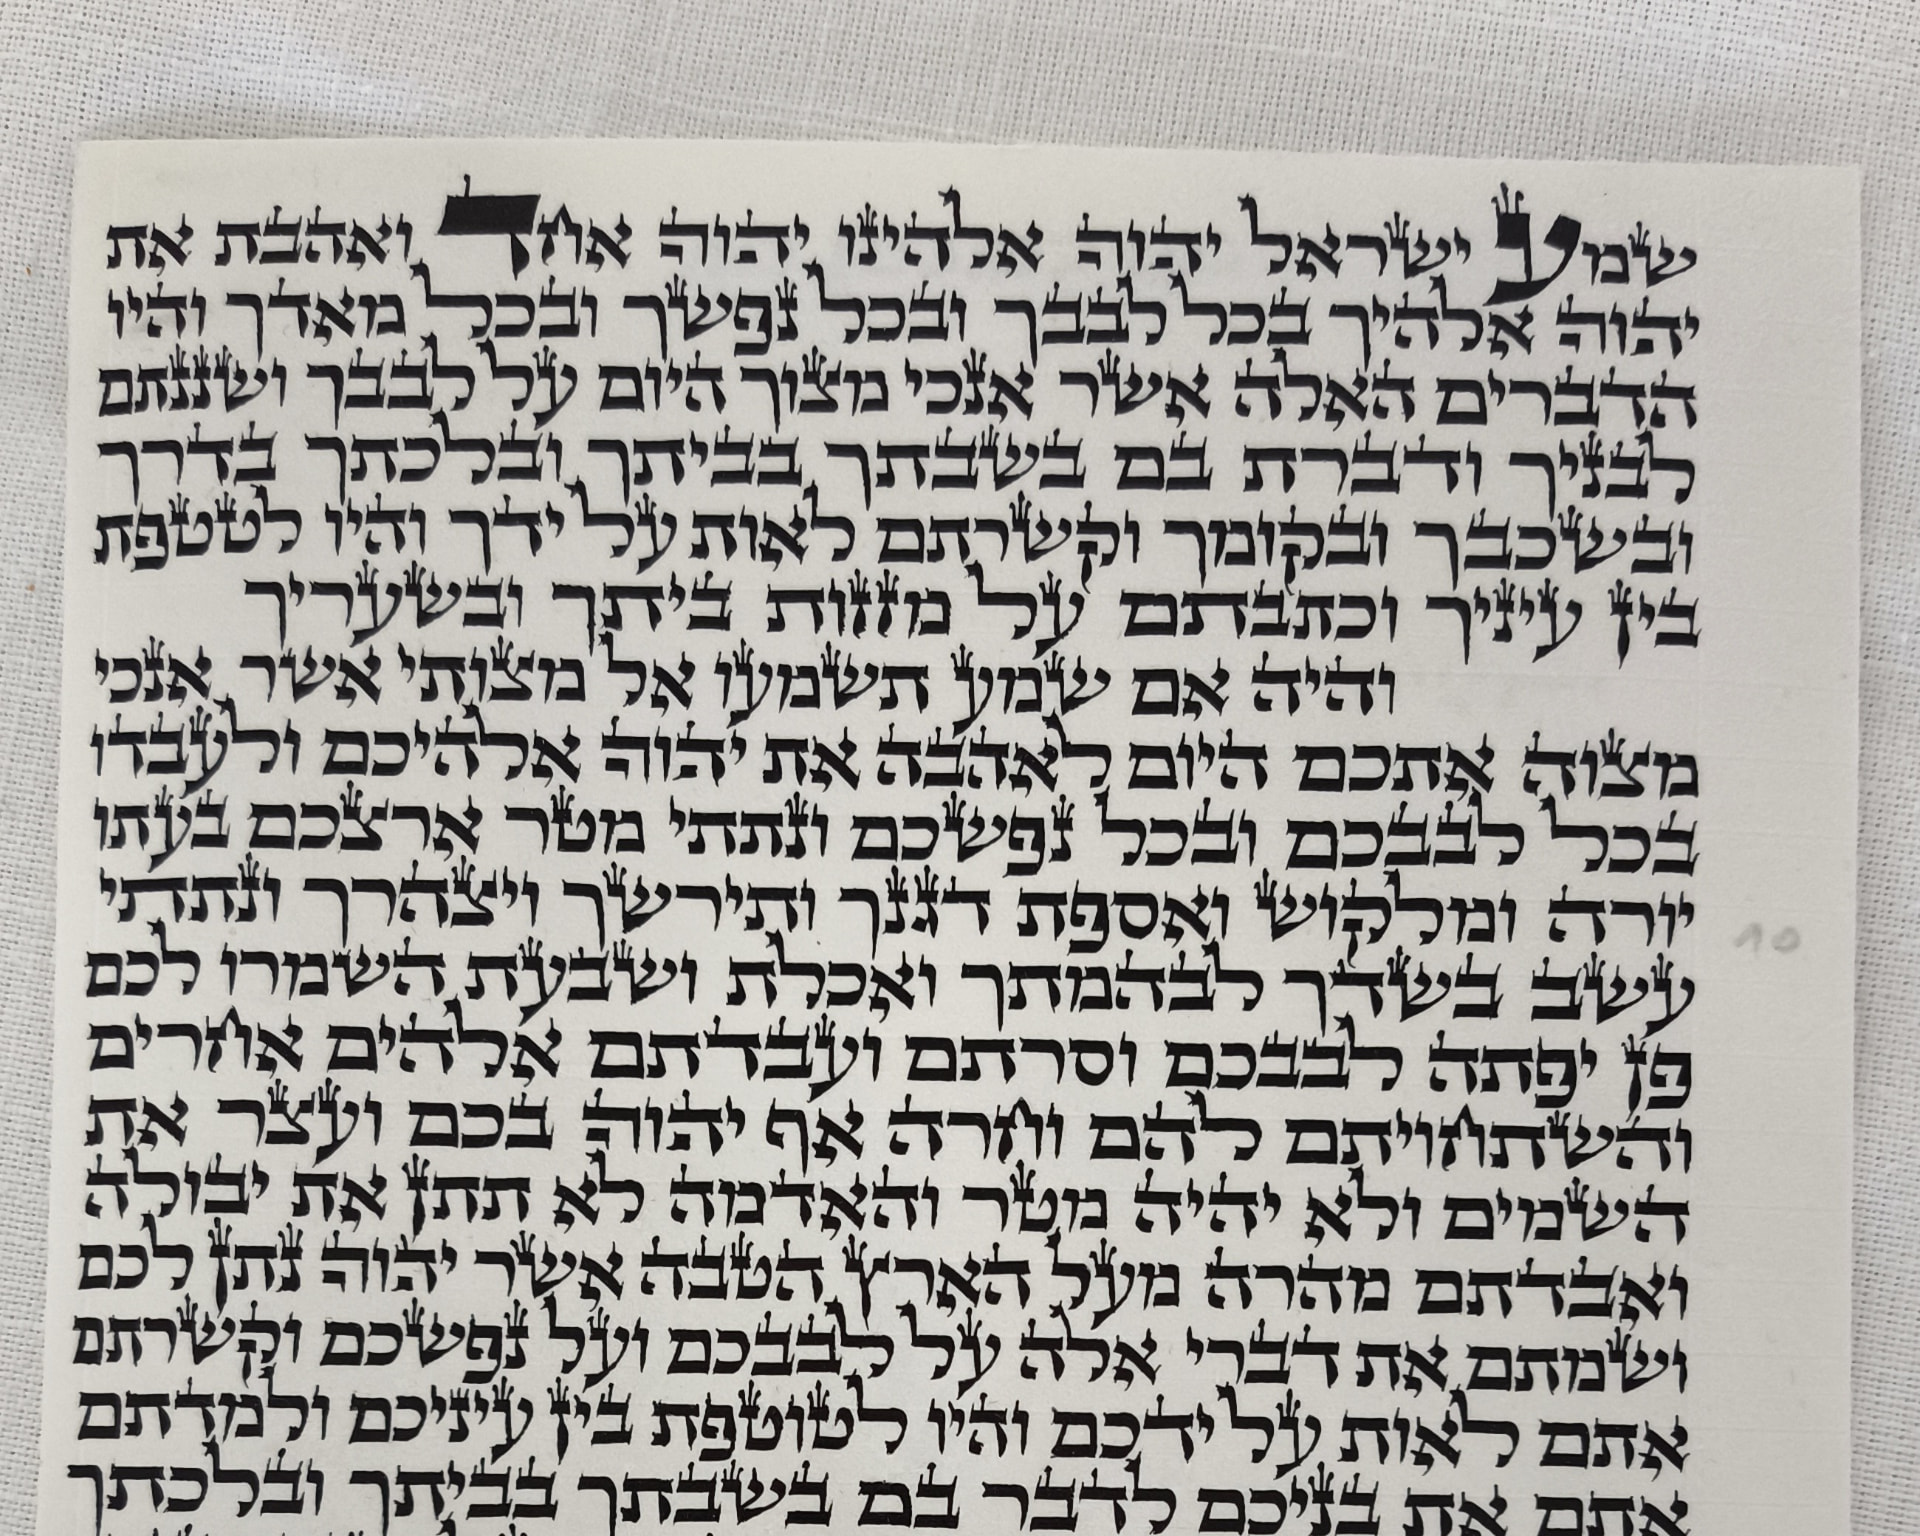 שמע ישראל יהוה אלהינו יהוה אחד ואהבת את
יהוה אלהיך בכל לבבך ובכל נפשך ובכל מאדך והיו
הדברים האלה אשר אנכי מצוך היום על לבבך ושננתם
לבניך ודברת בם בשבתך בביתך ובלכתך בדרך
ובשכבך ובקומך וקשרתם לאות על ידך והיו לטטפת
בין עיניך וכתבתם על מזזות ביתך ובשעריך
והיה אם שמע תשמעו אל מצותי אשר אנכי
מצוה אתכם היום לאהבה את יהוה אלהיכם ולעבדו
בכל לבבכם ובכל נפשכם ונתתי מטר ארצכם בעתו
יורה ומלקוש ואספת דגנך ותירשך ויצהרך ונתתי
עשב בשדך לבהמתך ואכלת ושבעת השמרו לכם
פן יפתה לבבכם וסרתם ועבדתם אלהים אחרים
והשתחויתם להם וחרה אף יהוה בכם ועצר את
השמים ולא יהיה מטר והאדמה לא תתן את יבולה
ואבדתם מהרה מעל הארץ הטבה אשר יהוה נתן לכם
ושמתם את דברי אלה על לבבכם ועל נפשכם וקשרתם
אתם לאות על ידכם והיו לטוטפת בין עיניכם ולמדתם
אתם את בניכם לדבר בם בשבתך בביתך ובלכתך
10